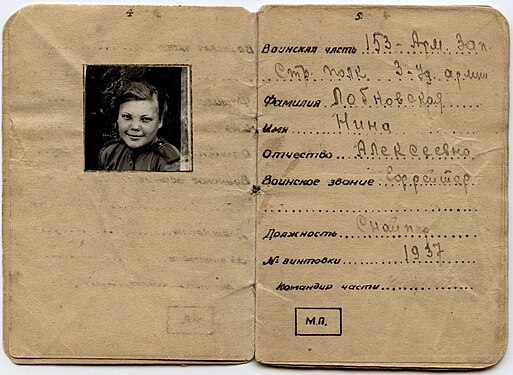 4
5
Воинская часть 153-Арм. Зап.
Стр. полк 3-Уд. армии
Фамилия Лобковская
Имя Нина
Отчество Алексеевна
Воинское звание Ефрейтор
Должность Снайпер
№ винтовки 1937
Командир части
М.П.